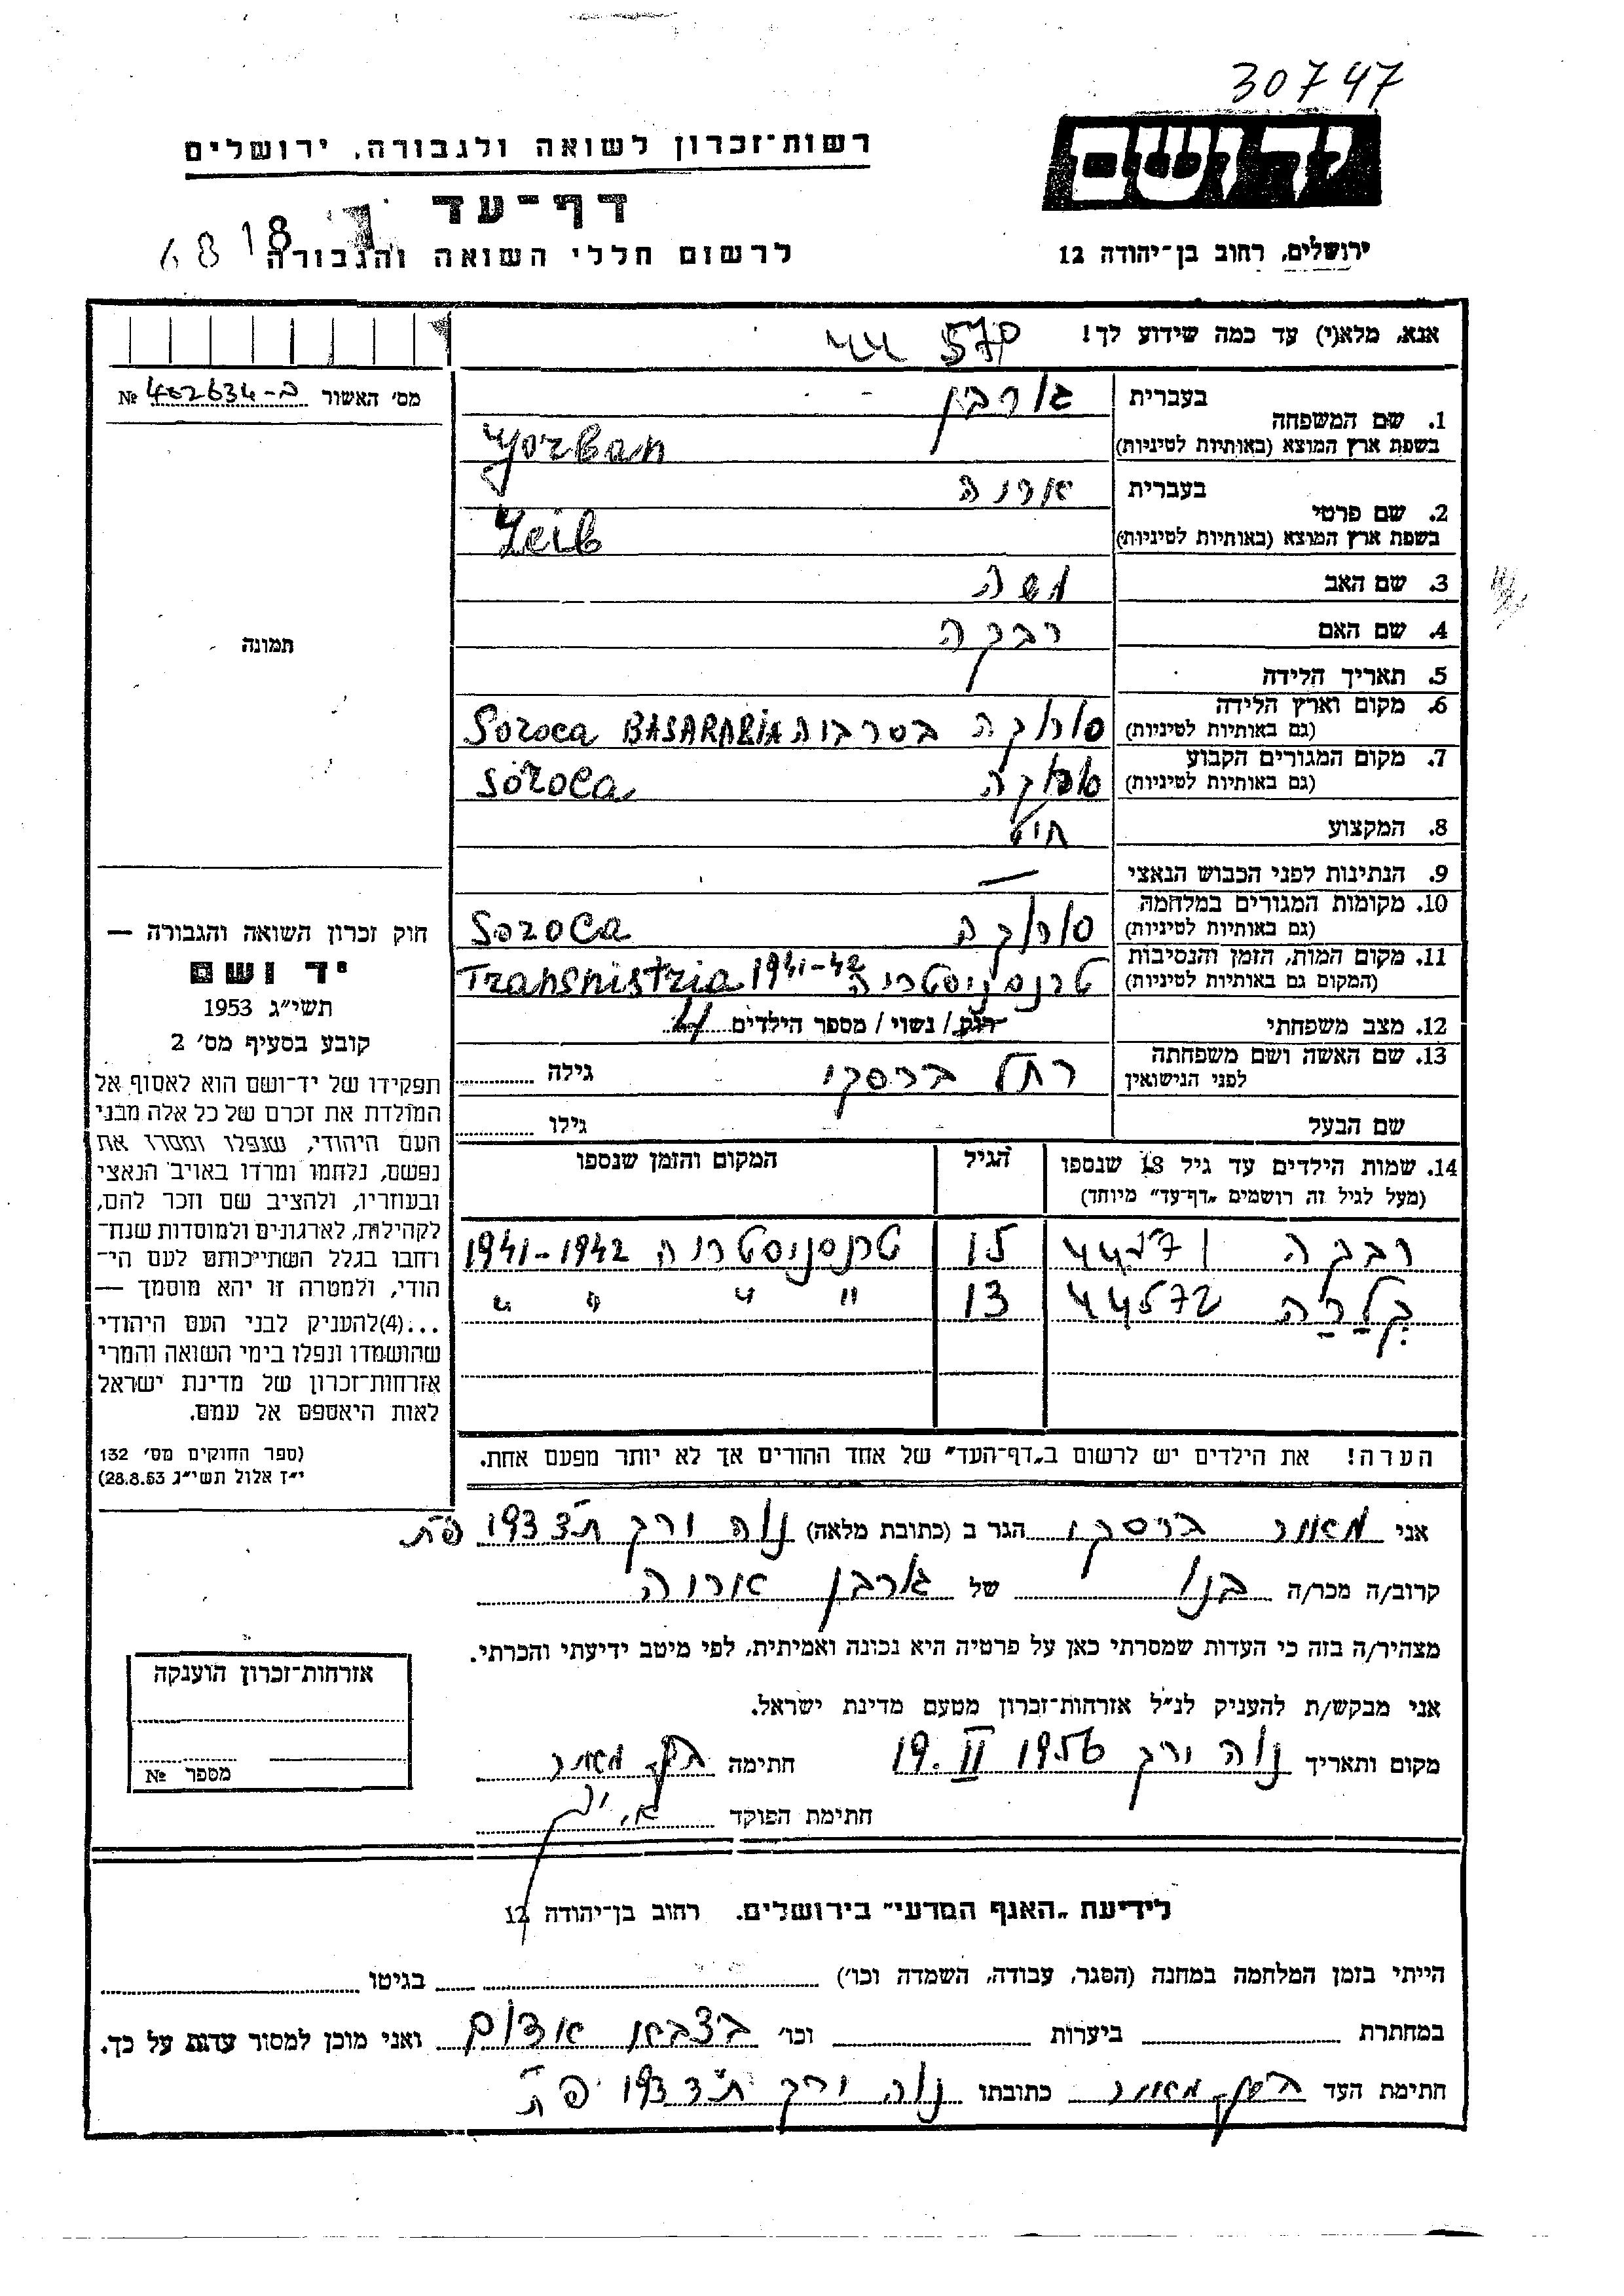 30747
רשות־זכרון לשואה ולגבורה, ירושלים
יד ושם
דף־עד
6818
לרשום חללי השואה והגבורה
ירושלים, רחוב בן־יהודה 12
אנא, מלא(י) עד כמה שידוע לך!
44 570
מס׳ האשור ב-402634 №
תמונה
1. שם המשפחה
בעברית גורבן
בשפת ארץ המוצא (באותיות לטיניות) Gorban
2. שם פרטי
בעברית אריה
בשפת ארץ המוצא (באותיות לטיניות) Leib
3. שם האב משה
4. שם האם רבקה
5. תאריך הלידה
6. מקום וארץ הלידה
(גם באותיות לטיניות) סורוקה בסרביה Soroca BASARABIA
7. מקום המגורים הקבוע
(גם באותיות לטיניות) סורוקה Soroca
8. המקצוע חייט
9. הנתינות לפני הכבוש הנאצי —
10. מקומות המגורים במלחמה
(גם באותיות לטיניות) סורוקה Soroca
11. מקום המות, הזמן והנסיבות
(המקום גם באותיות לטיניות) טרנסניסטריה 1941-42 Transnistria
12. מצב משפחתי רוק / נשוי / מספר הילדים 4
13. שם האשה ושם משפחתה
לפני הנישואין רחל ברסקי גילה
שם הבעל גילו
14. שמות הילדים עד גיל 18 שנספו
(מעל לגיל זה רושמים „דף־עד״ מיוחד)
הגיל
המקום והזמן שנספו
רבקה 44571 15 טרנסניסטריה 1941-1942
קלרה 44572 13 " " " "
הערה! את הילדים יש לרשום ב„דף־העד״ של אחד ההורים אך לא יותר מפעם אחת.
חוק זכרון השואה והגבורה —
יד ושם
תשי״ג 1953
קובע בסעיף מס׳ 2
תפקידו של יד־ושם הוא לאסוף אל
המולדת את זכרם של כל אלה מבני
העם היהודי, שנפלו ומסרו את
נפשם, נלחמו ומרדו באויב הנאצי
ובעוזריו, ולהציב שם וזכר להם,
לקהילות, לארגונים ולמוסדות שנח־
רחבו בגלל השתייכותם לעם הי־
הודי, ולמטרה זו יהא מוסמך —
...(4)להעניק לבני העם היהודי
שהושמדו ונפלו בימי השואה והמרי
אזרחות־זכרון של מדינת ישראל
לאות היאספם אל עמם.
(ספר החוקים מס׳ 132
י״ז אלול תשי״ג 28.8.53)
אני מאיר ברסקי הגר ב (כתובת מלאה) נוה ירק ת״ד 1933 פ״ת
קרוב/ה מכר/ה בנו של גורבן אריה
מצהיר/ה בזה כי העדות שמסרתי כאן על פרטיה היא נכונה ואמיתית, לפי מיטב ידיעתי והכרתי.
אני מבקש/ת להעניק לנ״ל אזרחות־זכרון מטעם מדינת ישראל.
מקום ותאריך נוה ירק 19. II 1956 חתימה
חתימת הפוקד
אזרחות־זכרון הוענקה
מספר №
לידיעת „האגף המדעי״ בירושלים. רחוב בן־יהודה 12
הייתי בזמן המלחמה במחנה (הסגר, עבודה, השמדה וכו׳) בגיטו
במחתרת ביערות וכו׳ בצבא אדום ואני מוכן למסור עדות על כך.
חתימת העד כתובתו נוה ירק ת״ד 1933 פ״ת